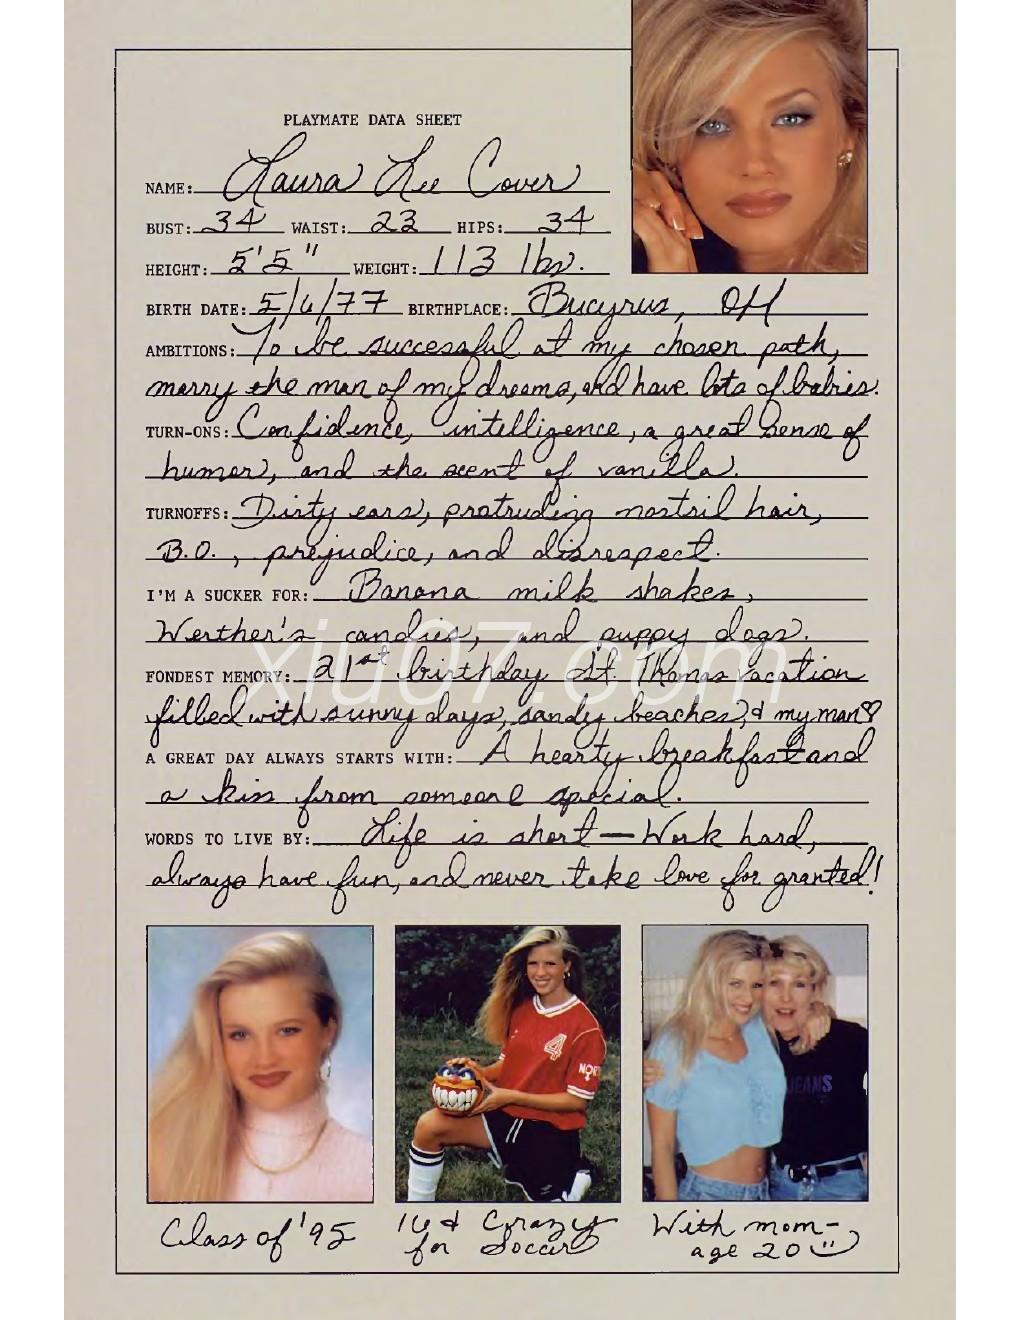 PLAYMATE DATA SHEET
NAME: Laura Lee Cover
BUST: 34 WAIST: 23 HIPS: 34
HEIGHT: 5'5" WEIGHT: 113 lbs.
BIRTH DATE: 5/6/77 BIRTHPLACE: Bucyrus, OH
AMBITIONS: To be successful at my chosen path,
marry the man of my dreams, and have lots of babies.
TURN-ONS: Confidence, intelligence, a great sense of
humor, and the scent of vanilla.
TURNOFFS: Dirty ears, protruding nostril hair,
B.O., prejudice, and disrespect.
I'M A SUCKER FOR: Banana milk shakes,
Werther's candies, and puppy dogs.
xiu07.com
FONDEST MEMORY: 21st birthday St. Thomas vacation
filled with sunny days, sandy beaches, & my man♡
A GREAT DAY ALWAYS STARTS WITH: A hearty breakfast and
a kiss from someone special.
WORDS TO LIVE BY: Life is short—Work hard,
always have fun, and never take love for granted!
4
NOR
JEANS
Class of '95
16 & Crazy
for Soccer
With mom-
age 20